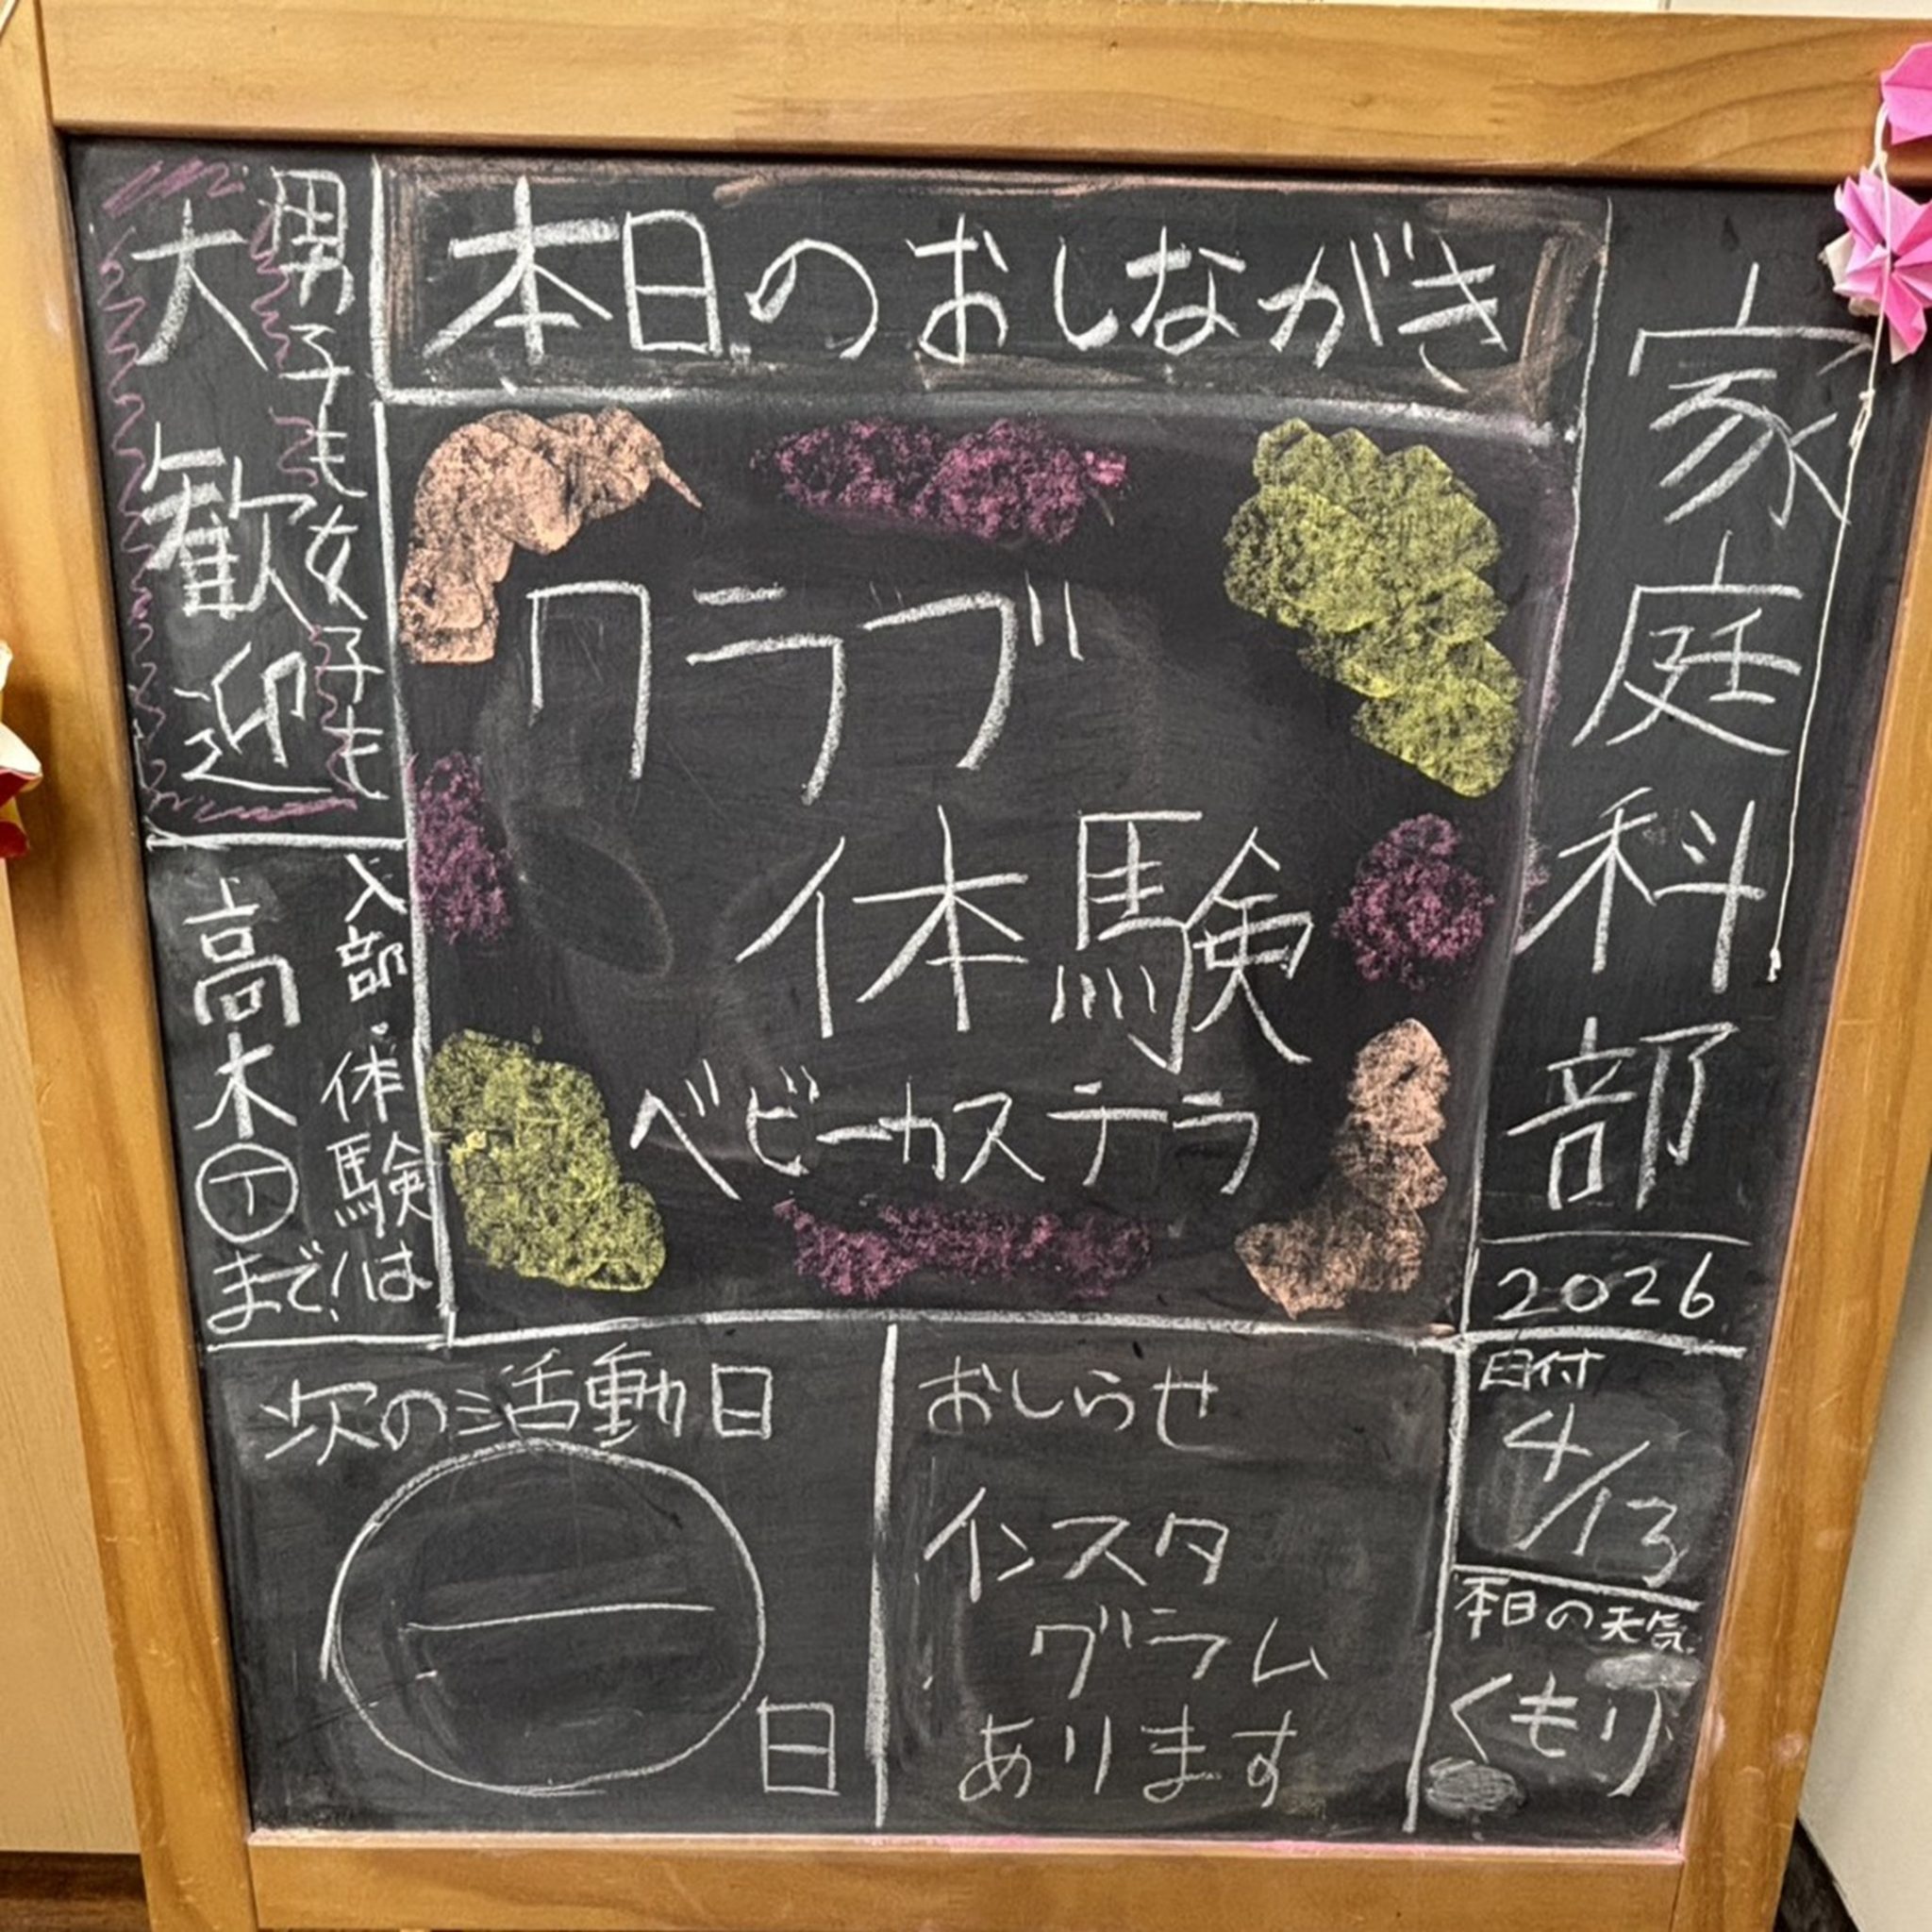 家庭科部
2026
日付
4/13
本日の天気
くもり
本日のおしながき
クラブ
体験
ベビーカステラ
男子も女子も
大歓迎
入部・体験は
高木㋜まで!
次の活動日
一
日
おしらせ
インスタ
グラム
あります